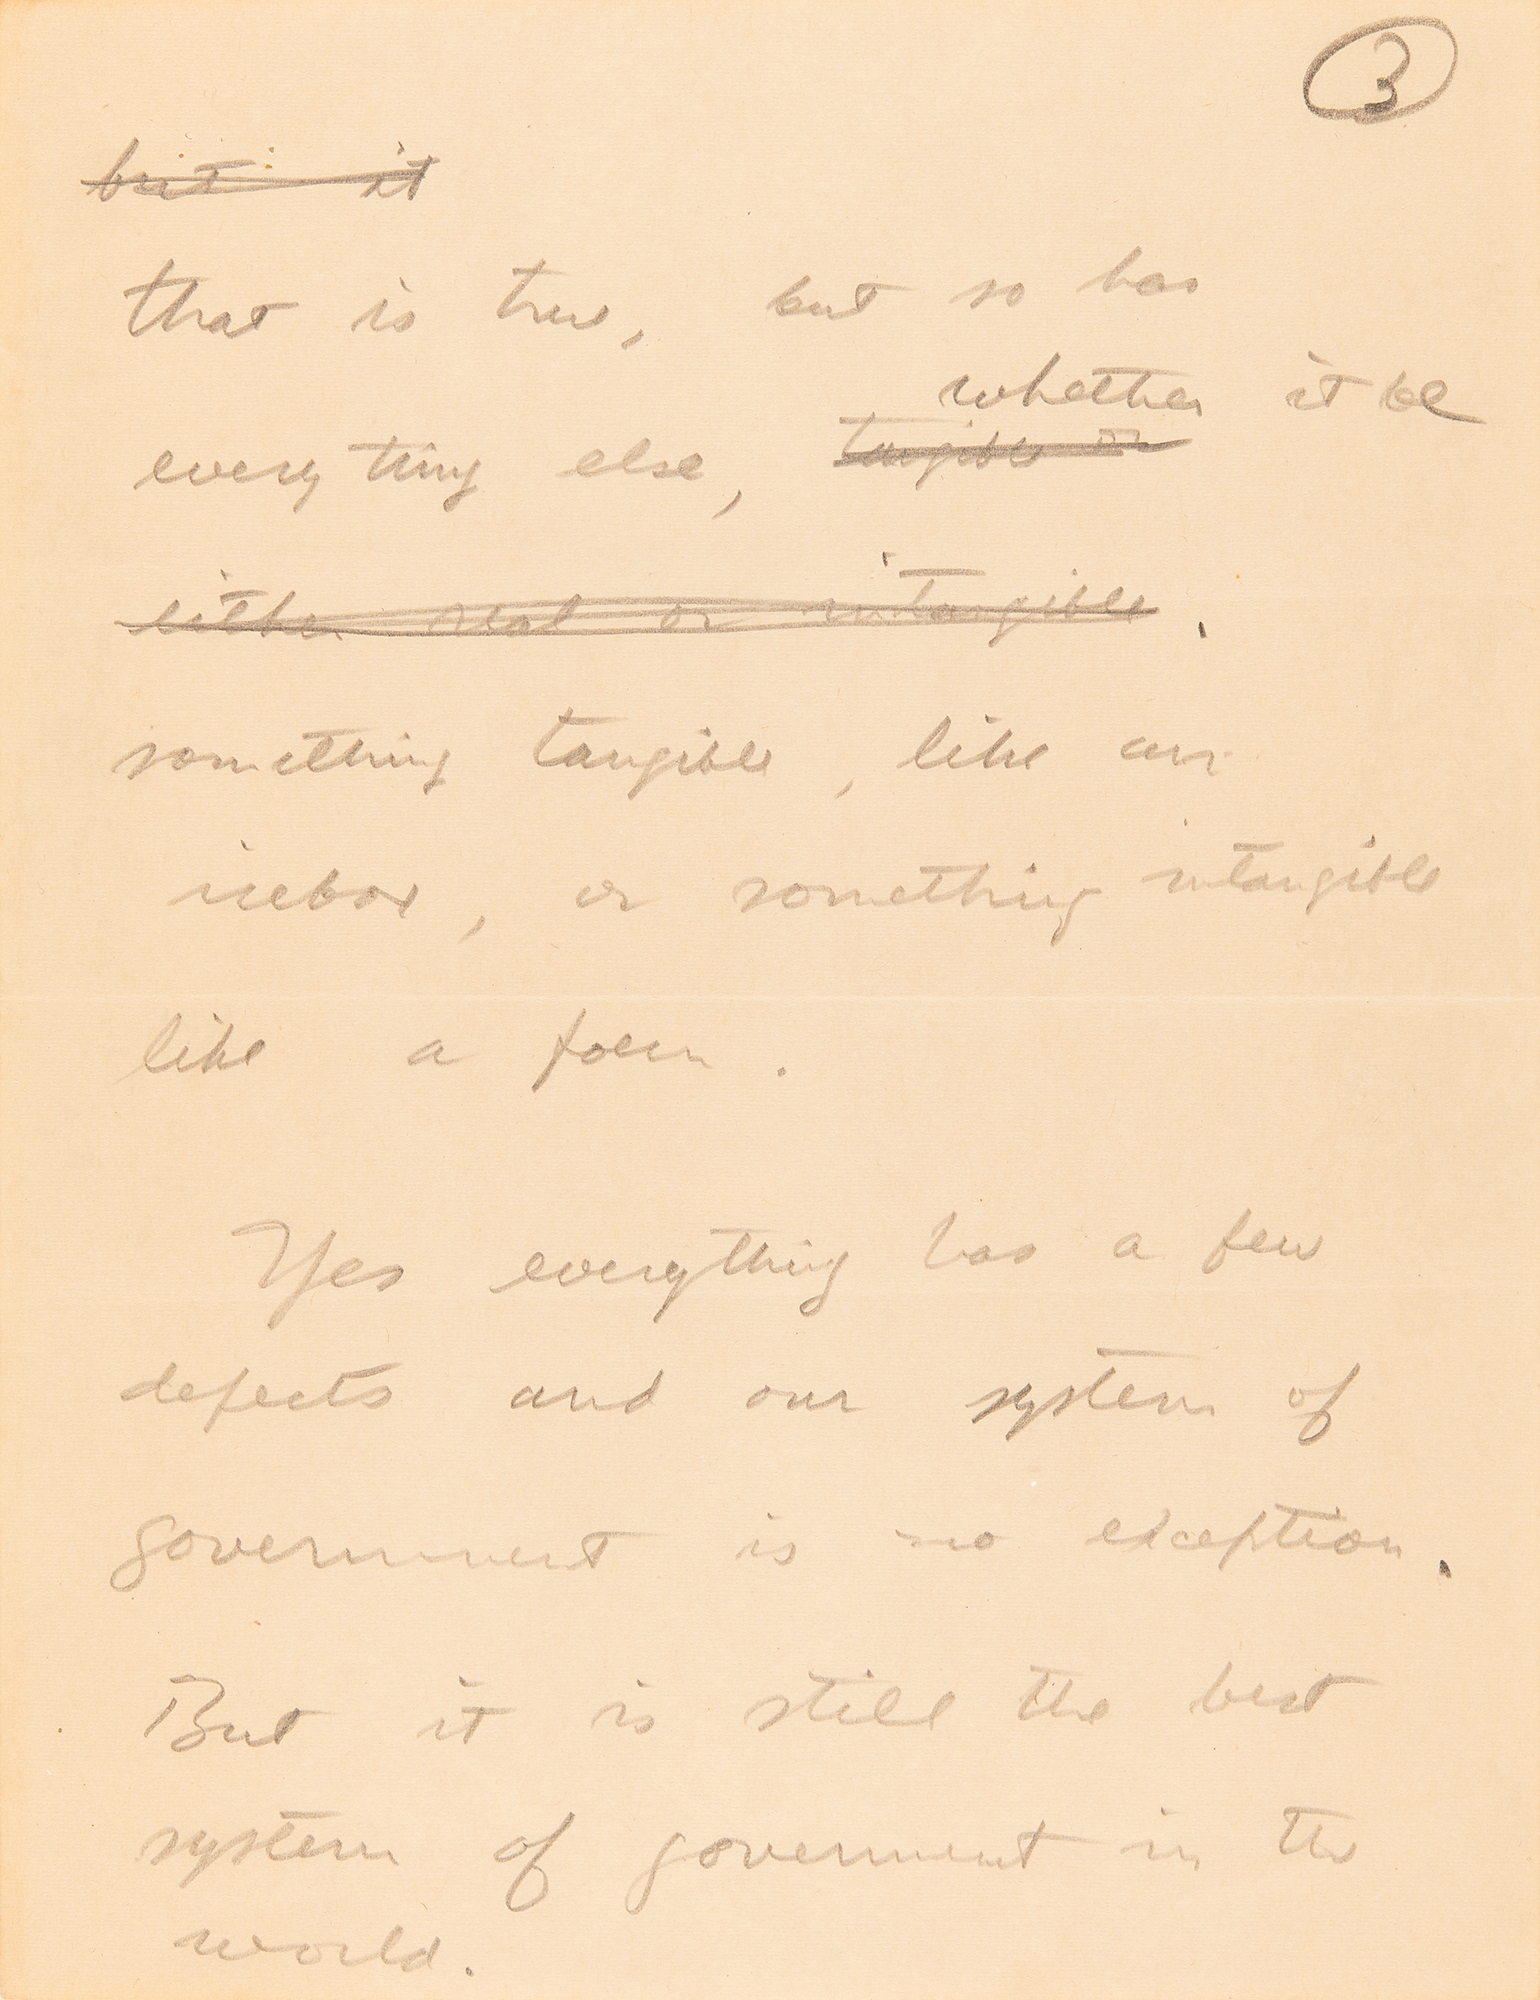 3
but it
that is true, but so has
whether it be
every thing else, tangible or
either real or intangible.
something tangible, like an
icebox, or something intangible
like a poem.
Yes everything has a few
defects and our system of
government is no exception.
But it is still the best
system of government in the
world.